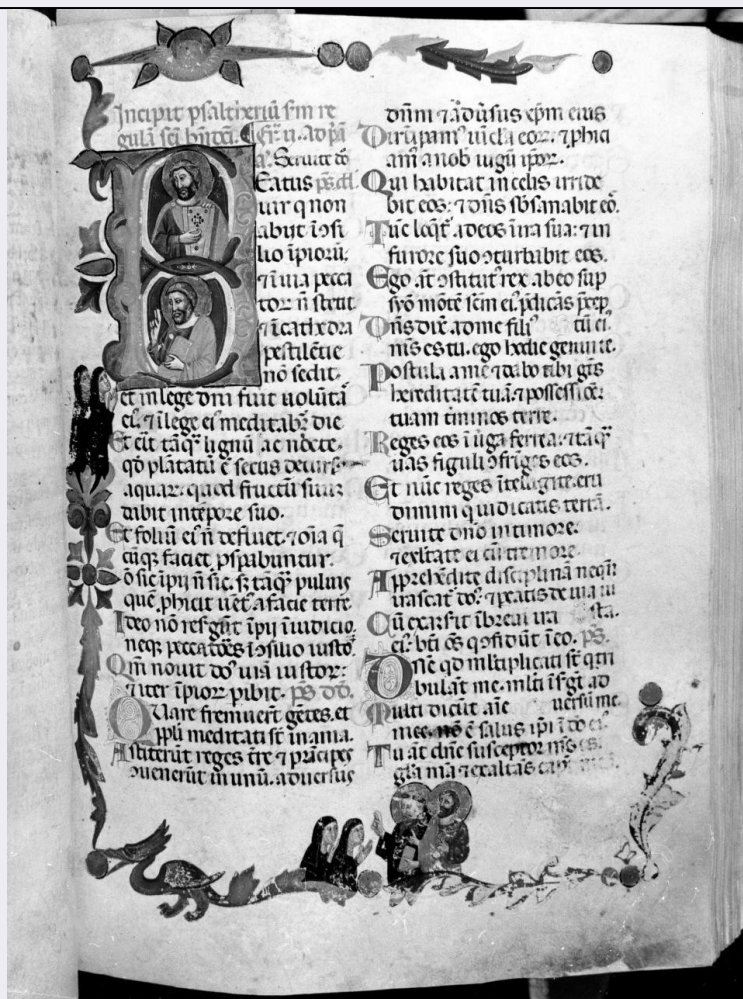 Incipit psaltheriũ s̃m re
gulã sc̃i bñdcĩ.
a. Seruite dõ
Eatus
uir q non
abiit ĩ ɔsi
lio ĩpiorũ.
⁊ ĩ uia pecca
tor ñ stetit
⁊ ĩ cathedra
pestilẽtie
nõ sedit.
et in lege dñi fuit uolũtã
ei. ⁊ ĩ lege ei meditabr̃ die
Et erit tãq̃ lignũ ac nocte.
qd̃ plãtatũ ẽ secus decurs
aquar. quod fructũ suũ
dabit in tẽpore suo.
Et foliũ ei ñ defluet. ⁊ oĩa q̃
cũq faciet ꝓspabuntur.
õ sic ĩpij ñ sic. s; tãq̃ puluis
quẽ ꝓhicit uẽt a facie terre
Ideo nõ resgũt ĩpij ĩ iudicio.
neq peccatores ĩ ɔsilio iusto.
Qm̃ nouit dõ uiã iustor:
⁊ iter ĩpior pibit.
Quare fremuert gẽtes. et
ppli meditati st̃ inania.
Astiterũt reges tr̃e ⁊ prĩcipes
ɔuenerũt in unũ. aduersus
dñm ⁊ adũsus xp̃m eius
Dirũpam uĩcla eor. ⁊ ꝓhici
am a nob iugũ ipor.
Qui habitat in celis irride
bit eos: ⁊ dñs sb̃sãnabit eõ.
Tũc loq̃t ad eos ĩ ira sua: ⁊ in
furore suo ɔturbabit eos.
Ego ãt ɔstitut rex ab eo sup
syõ mõtẽ sc̃m ei. p̃dicãs p̃cep
Dñs dix̃ ad me fili tũ ei
mis es tu. ego hodie genui te.
Postula a me ⁊ dabo tibi gẽs
hereditatẽ tuã. ⁊ possessiõe:
tuam t̃minos terre.
Reges eos ĩ uga ferrea. ⁊ tãq̃
uas figuli ɔfrĩges eos.
Et nũc reges ĩtelligite. eru
dimini q iudicatis terrã.
Seruite dño in timore.
⁊ exl̃tate ei cũ tremore.
Apprehẽdite disciplinã neq̃ñ
irascat dõ. ⁊ peatis de uia iu
Cũ exarsit ĩ breui ira sta.
ei. bt̃i õs q ɔfidũt ĩ eo. ps̃.
Dñe qd ml̃tiplicati st̃ qui
bulãt me. ml̃ti ĩsgt̃ ad
Multi dicũt aĩe uersũ me.
mee. nõ ẽ salus ip̃i ĩ dõ ei.
Tu ãt dñe susceptor m̃s es.
gl̃a m̃a ⁊ exaltãs